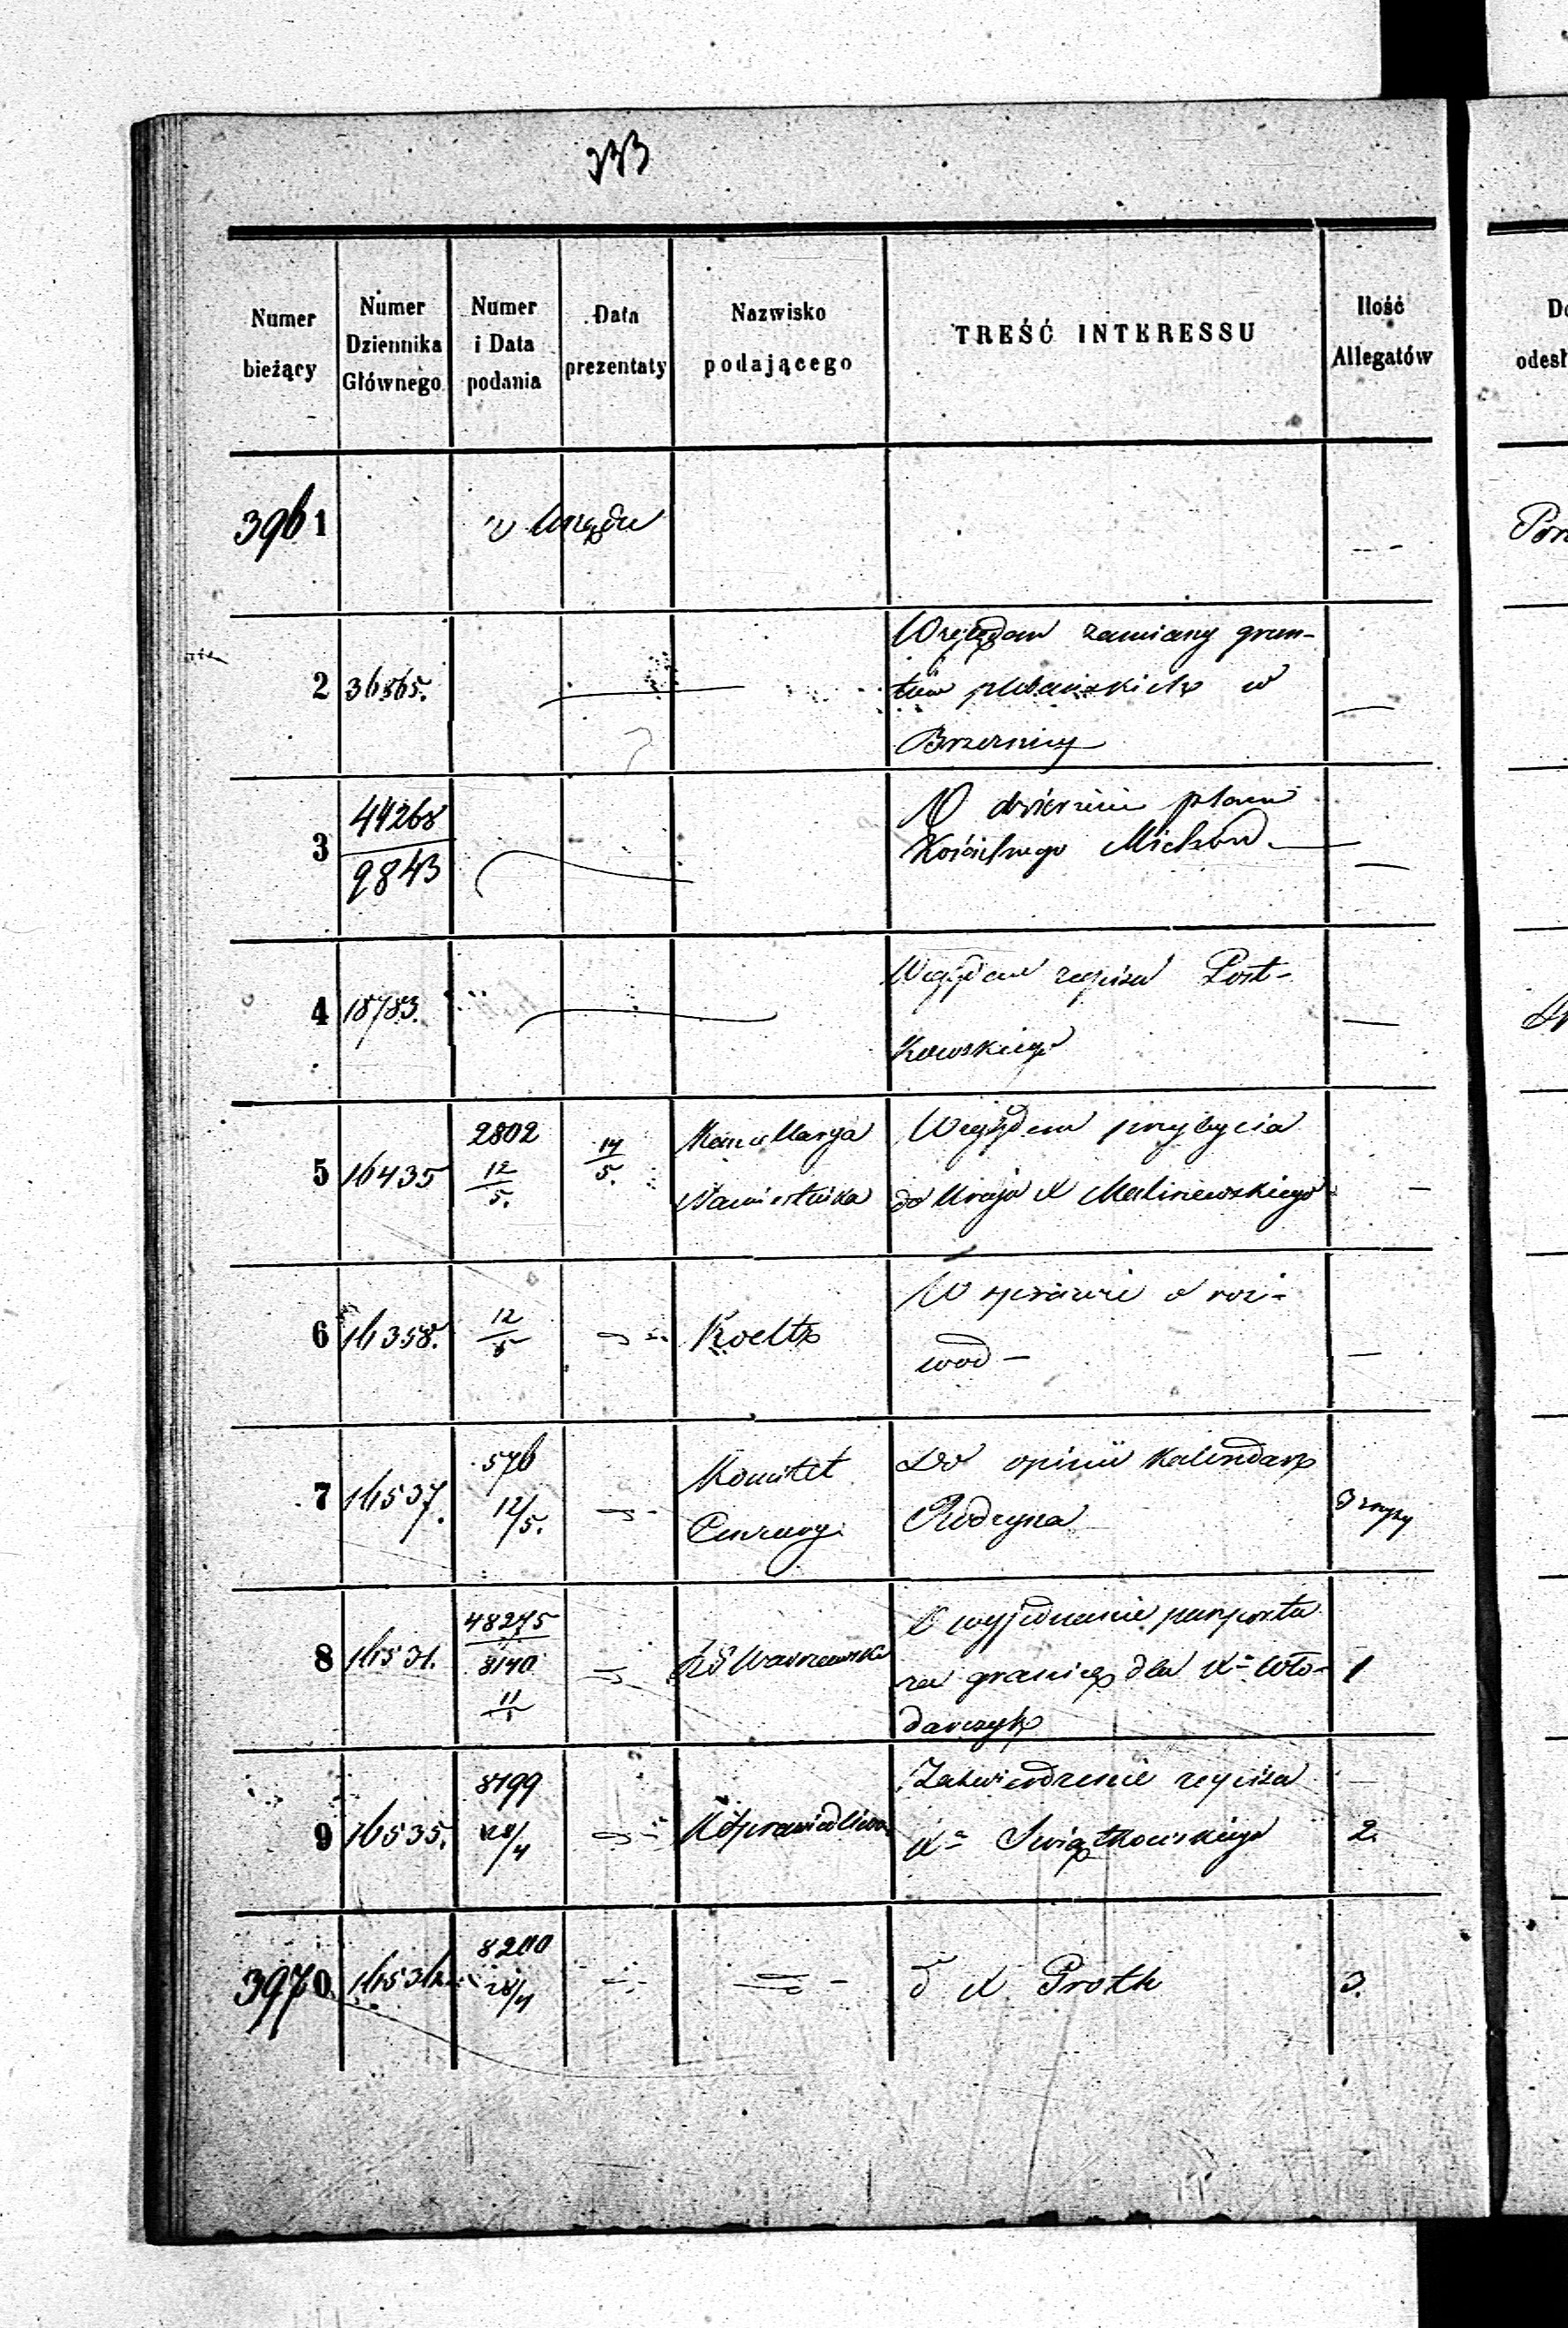 333
Numer bieżący
Numer Dziennika Głównego
Numer i Data podania
Data prezentaty
Nazwisko podającego
TREŚĆ INTERESSU
Ilość Allegatów
3961
z Urzędu
2
36865.
Względem zamiany grun-
tów plebańskich w
Brzeznicy
3
44268
9843
O dzierżawie placu
Kościelnego Miechów
4
18783.
Względem zapisu Post-
kowskiego
5
16435
2802
12/5.
14/5.
Kancellarya
Namiestnika
Względem przybycia
do Kraju X Malinowskiego
6
16358.
12/5
Koeltz
W sprawie o roz-
wod
7
16537.
576
12/5.
Komitet
Cenzury
Do opinii Kalendarz
Rodzyna
8
16531.
48275
8140
11
RG Warszawski
O wyjednanie paszportu
za granicę dla Xa Wło-
darczyk
1
9
16535.
8199
28/4
KSprawiedliwo.
Zatwierdzenie zapisu
Xa Swiątkowskiego
2.
3970
16536.
8200
28/4
d X Proth
3.
De
odesł
Pon